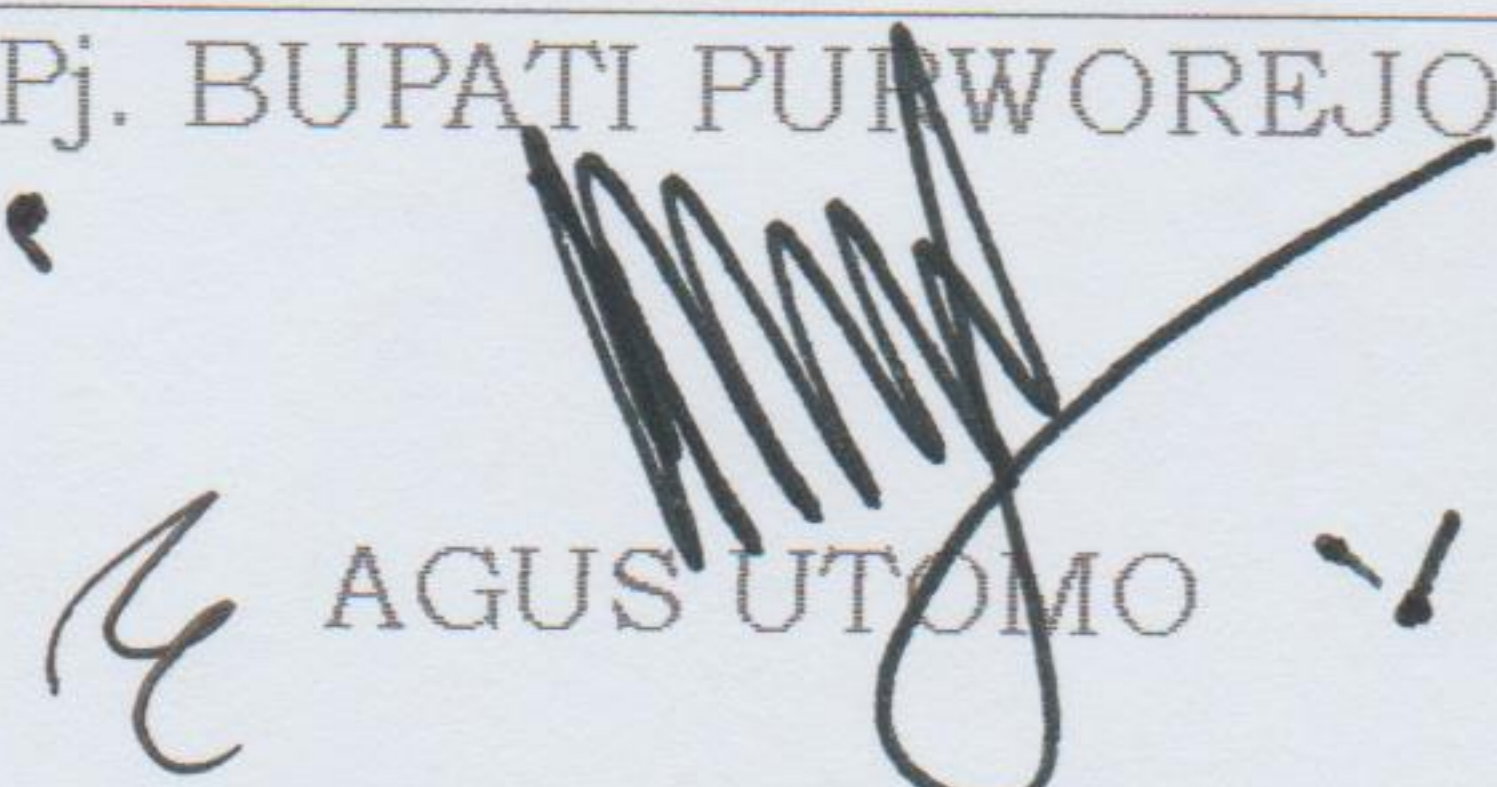 Pj. BUPATI PURWOREJO
AGUS UTOMO